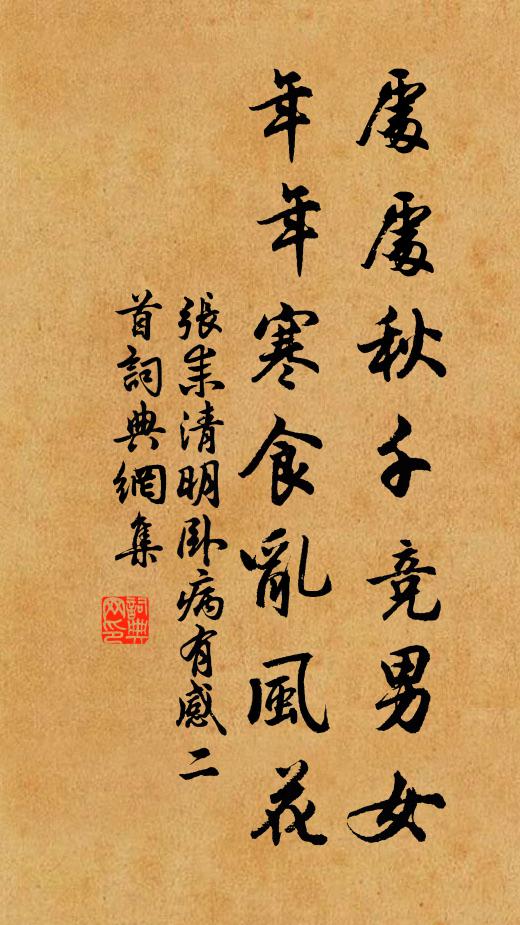 處處秋千競男女
年年寒食亂風花
張耒清明卧病有感二
首詞典網集
詞典
网印